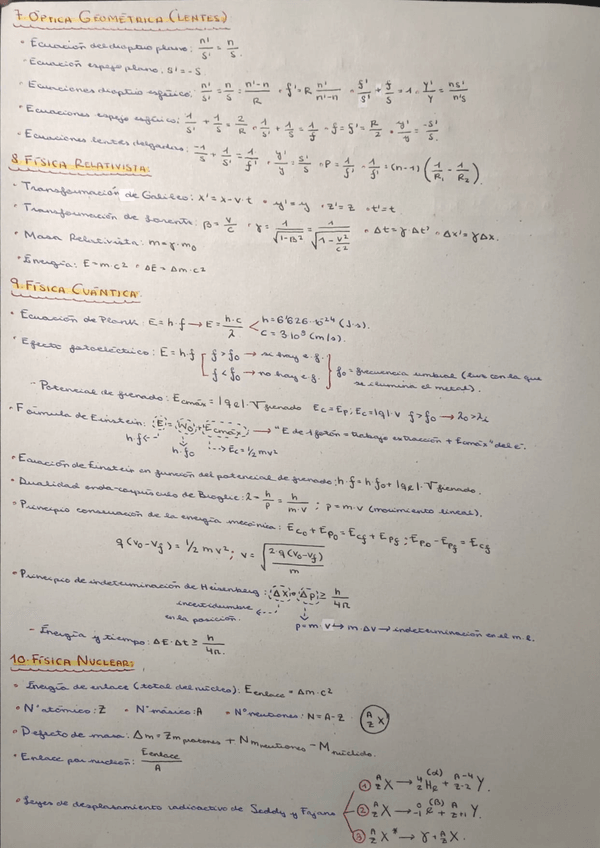 7. ÓPTICA GEOMÉTRICA (LENTES)
• Ecuación del dioptrio plano: n'/s' = n/s
• Ecuación espejo plano: s' = -s
• Ecuaciones dioptrio esférico: n'/s' = n/s = n'-n/R • f' = R n'/n'-n • f'/s' + f/s = 1 • y'/y = ns'/n's
• Ecuaciones espejo esférico: 1/s' + 1/s = 2/R • 1/s' + 1/s = 1/f • f = f' = R/2 • y'/y = -s'/s
• Ecuaciones lentes delgadas: -1/s + 1/s' = 1/f' • y'/y = s'/s • P = 1/f' • 1/f' = (n-1) (1/R1 - 1/R2)
8. FÍSICA RELATIVISTA:
• Transformación de Galileo: x' = x - v · t • y' = y • z' = z • t' = t
• Transformación de Lorentz: β = v/c • γ = 1/√(1-β²) = 1/√(1 - v²/c²) • Δt = γ · Δt' • Δx' = γ Δx.
• Masa Relativista: m = γ · m0
• Energía: E = m · c² • ΔE = Δm · c²
9. FÍSICA CUÁNTICA.
• Ecuación de Plank: E = h · f → E = h · c/λ < h = 6'626 · 10⁻²⁴ (J·s).
c = 3 · 10⁸ (m/s).
• Efecto fotoeléctrico: E = h · f [ f > f0 → si hay e.f.
f < f0 → no hay e.f. } f0 = frecuencia umbral (luz con la que se ilumina el metal).
- Potencial de frenado: Ecmáx = |qe| · V frenado Ec = Ep; Ec = |q| · V f > f0 → λ0 > λi
• Fórmula de Einstein: E = W0 + Ecmáx → "E de 1 fotón = trabajo extracción + Ecmáx" del e⁻.
h·f ← h·f0 → Ec = 1/2 mv²
• Ecuación de Einstein en función del potencial de frenado: h · f = h f0 + |qe| · V frenado.
• Dualidad onda-corpúsculo de Broglie: λ = h/p = h/m·v ; p = m · v (movimiento lineal).
• Principio conservación de la energía mecánica: Ec0 + Ep0 = Ecf + Epf ; Ep0 - Epf = Ecf
q(V0 - Vf) = 1/2 m v² ; v = √(2q(V0 - Vf)/m)
• Principio de indeterminación de Heisenberg: Δx · Δp ≥ h/4π
incertidumbre en la posición. p = m · v → m · Δv → indeterminación en el m.l.
- Energía y tiempo: ΔE · Δt ≥ h/4π.
10. FÍSICA NUCLEAR:
• Energía de enlace (total del núcleo): Eenlace = Δm · c²
• Nº atómico: Z • Nº másico: A • Nº neutrones: N = A - Z (A/Z X)
• Defecto de masa: Δm = Z mprotones + N mneutrones - Mnúclido.
• Enlace por nucleón: Eenlace/A
• Leyes de desplazamiento radioactivo de Soddy y Fajans
① A/Z X → 4/2 He (α) + A-4/Z-2 Y.
② A/Z X → 0/-1 e (β) + A/Z+1 Y.
③ A/Z X* → γ + A/Z X.